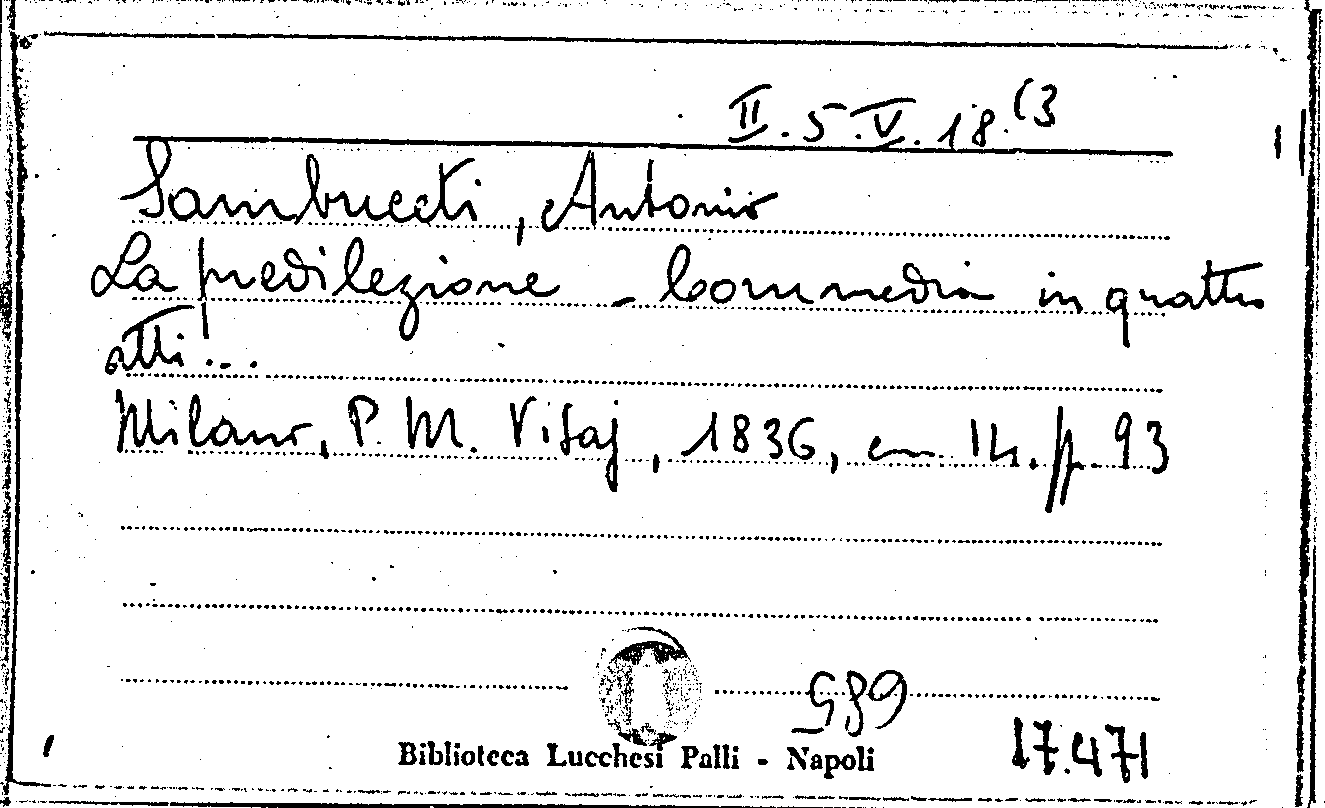 II.5.V.18.(3
Sambuceti, Antonio
La predilezione - Commedia in quattro
atti...
Milano, P. M. Visaj, 1836, in 14. pp. 93
989
Biblioteca Lucchesi Palli - Napoli
17.471